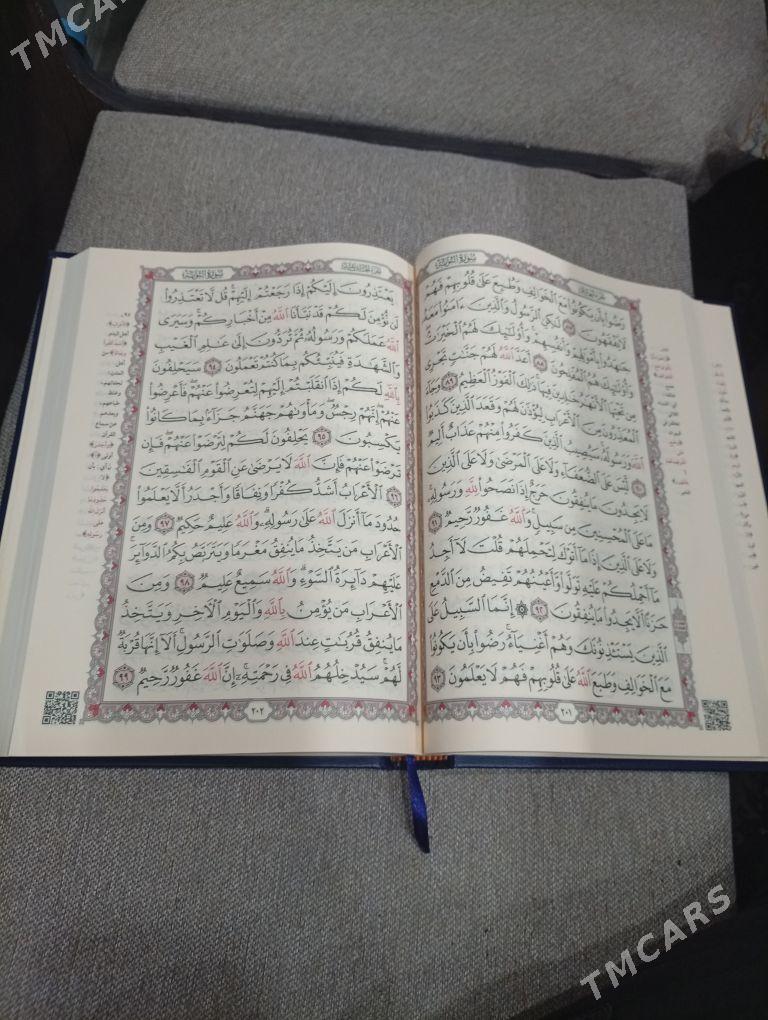 TMCARS
سورة التوبة
رَضُوا۟ بِأَن يَكُونُوا۟ مَعَ ٱلْخَوَالِفِ وَطُبِعَ عَلَىٰ قُلُوبِهِمْ فَهُمْ
لَا يَفْقَهُونَ ٨٧ لَٰكِنِ ٱلرَّسُولُ وَٱلَّذِينَ ءَامَنُوا۟ مَعَهُۥ
جَٰهَدُوا۟ بِأَمْوَٰلِهِمْ وَأَنفُسِهِمْ وَأُو۟لَٰٓئِكَ لَهُمُ ٱلْخَيْرَٰتُ
وَأُو۟لَٰٓئِكَ هُمُ ٱلْمُفْلِحُونَ ٨٨ أَعَدَّ ٱللَّهُ لَهُمْ جَنَّٰتٍ تَجْرِى
مِن تَحْتِهَا ٱلْأَنْهَٰرُ خَٰلِدِينَ فِيهَا ذَٰلِكَ ٱلْفَوْزُ ٱلْعَظِيمُ ٨٩ وَجَآءَ
ٱلْمُعَذِّرُونَ مِنَ ٱلْأَعْرَابِ لِيُؤْذَنَ لَهُمْ وَقَعَدَ ٱلَّذِينَ كَذَبُوا۟
ٱللَّهَ وَرَسُولَهُۥ سَيُصِيبُ ٱلَّذِينَ كَفَرُوا۟ مِنْهُمْ عَذَابٌ أَلِيمٌ
٩٠ لَّيْسَ عَلَى ٱلضُّعَفَآءِ وَلَا عَلَى ٱلْمَرْضَىٰ وَلَا عَلَى ٱلَّذِينَ
لَا يَجِدُونَ مَا يُنفِقُونَ حَرَجٌ إِذَا نَصَحُوا۟ لِلَّهِ وَرَسُولِهِۦ
مَا عَلَى ٱلْمُحْسِنِينَ مِن سَبِيلٍ وَٱللَّهُ غَفُورٌ رَّحِيمٌ ٩١
وَلَا عَلَى ٱلَّذِينَ إِذَا مَآ أَتَوْكَ لِتَحْمِلَهُمْ قُلْتَ لَآ أَجِدُ
مَآ أَحْمِلُكُمْ عَلَيْهِ تَوَلَّوا۟ وَّأَعْيُنُهُمْ تَفِيضُ مِنَ ٱلدَّمْعِ
حَزَنًا أَلَّا يَجِدُوا۟ مَا يُنفِقُونَ ٩٢ ۞ إِنَّمَا ٱلسَّبِيلُ عَلَى
ٱلَّذِينَ يَسْتَـْٔذِنُونَكَ وَهُمْ أَغْنِيَآءُ رَضُوا۟ بِأَن يَكُونُوا۟
مَعَ ٱلْخَوَالِفِ وَطَبَعَ ٱللَّهُ عَلَىٰ قُلُوبِهِمْ فَهُمْ لَا يَعْلَمُونَ ٩٣
٢٠١
سورة التوبة
يَعْتَذِرُونَ إِلَيْكُمْ إِذَا رَجَعْتُمْ إِلَيْهِمْ قُل لَّا تَعْتَذِرُوا۟
لَن نُّؤْمِنَ لَكُمْ قَدْ نَبَّأَنَا ٱللَّهُ مِنْ أَخْبَارِكُمْ وَسَيَرَى
ٱللَّهُ عَمَلَكُمْ وَرَسُولُهُۥ ثُمَّ تُرَدُّونَ إِلَىٰ عَٰلِمِ ٱلْغَيْبِ
وَٱلشَّهَٰدَةِ فَيُنَبِّئُكُم بِمَا كُنتُمْ تَعْمَلُونَ ٩٤ سَيَحْلِفُونَ
بِٱللَّهِ لَكُمْ إِذَا ٱنقَلَبْتُمْ إِلَيْهِمْ لِتُعْرِضُوا۟ عَنْهُمْ فَأَعْرِضُوا۟
عَنْهُمْ إِنَّهُمْ رِجْسٌ وَمَأْوَىٰهُمْ جَهَنَّمُ جَزَآءًۢ بِمَا كَانُوا۟
يَكْسِبُونَ ٩٥ يَحْلِفُونَ لَكُمْ لِتَرْضَوْا۟ عَنْهُمْ فَإِن
تَرْضَوْا۟ عَنْهُمْ فَإِنَّ ٱللَّهَ لَا يَرْضَىٰ عَنِ ٱلْقَوْمِ ٱلْفَٰسِقِينَ
٩٦ ٱلْأَعْرَابُ أَشَدُّ كُفْرًا وَنِفَاقًا وَأَجْدَرُ أَلَّا يَعْلَمُوا۟
حُدُودَ مَآ أَنزَلَ ٱللَّهُ عَلَىٰ رَسُولِهِۦ وَٱللَّهُ عَلِيمٌ حَكِيمٌ ٩٧ وَمِنَ
ٱلْأَعْرَابِ مَن يَتَّخِذُ مَا يُنفِقُ مَغْرَمًا وَيَتَرَبَّصُ بِكُمُ ٱلدَّوَآئِرَ
عَلَيْهِمْ دَآئِرَةُ ٱلسَّوْءِ وَٱللَّهُ سَمِيعٌ عَلِيمٌ ٩٨ وَمِنَ
ٱلْأَعْرَابِ مَن يُؤْمِنُ بِٱللَّهِ وَٱلْيَوْمِ ٱلْءَاخِرِ وَيَتَّخِذُ
مَا يُنفِقُ قُرُبَٰتٍ عِندَ ٱللَّهِ وَصَلَوَٰتِ ٱلرَّسُولِ أَلَآ إِنَّهَا قُرْبَةٌ
لَّهُمْ سَيُدْخِلُهُمُ ٱللَّهُ فِى رَحْمَتِهِۦٓ إِنَّ ٱللَّهَ غَفُورٌ رَّحِيمٌ ٩٩
٢٠٢
TMCARS